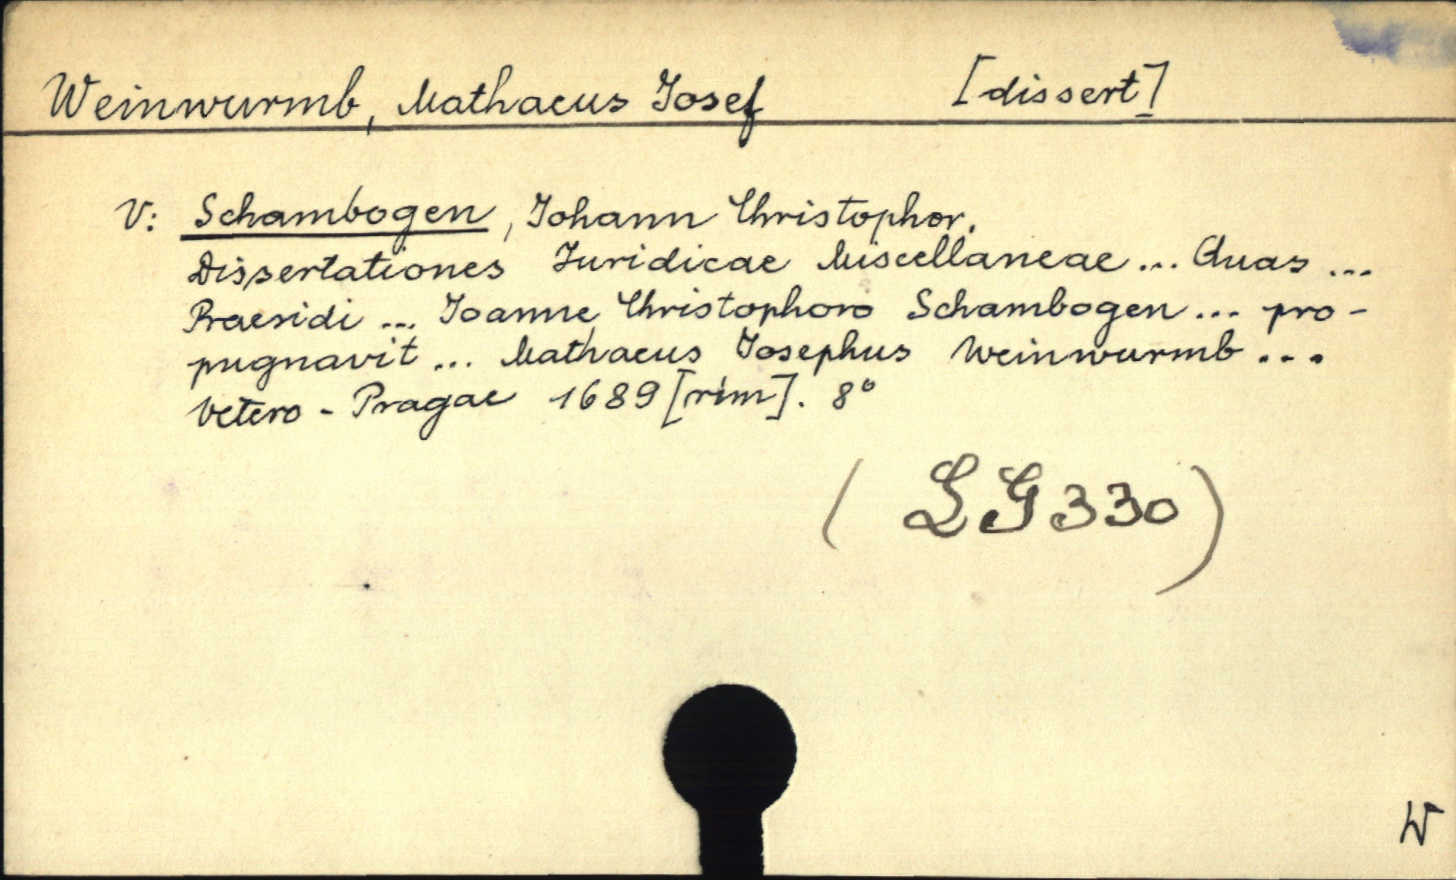 Weinwurmb, Mathaeus Josef [dissert]
V: Schambogen, Johann Christophor.
Dissertationes Juridicae Miscellaneae... Quas ...
Praesidi ... Joanne Christophoro Schambogen ... pro-
pugnavit ... Mathaeus Josephus Weinwurmb ...
Vetero-Pragae 1689 [rim]. 8°
(LG330)
W